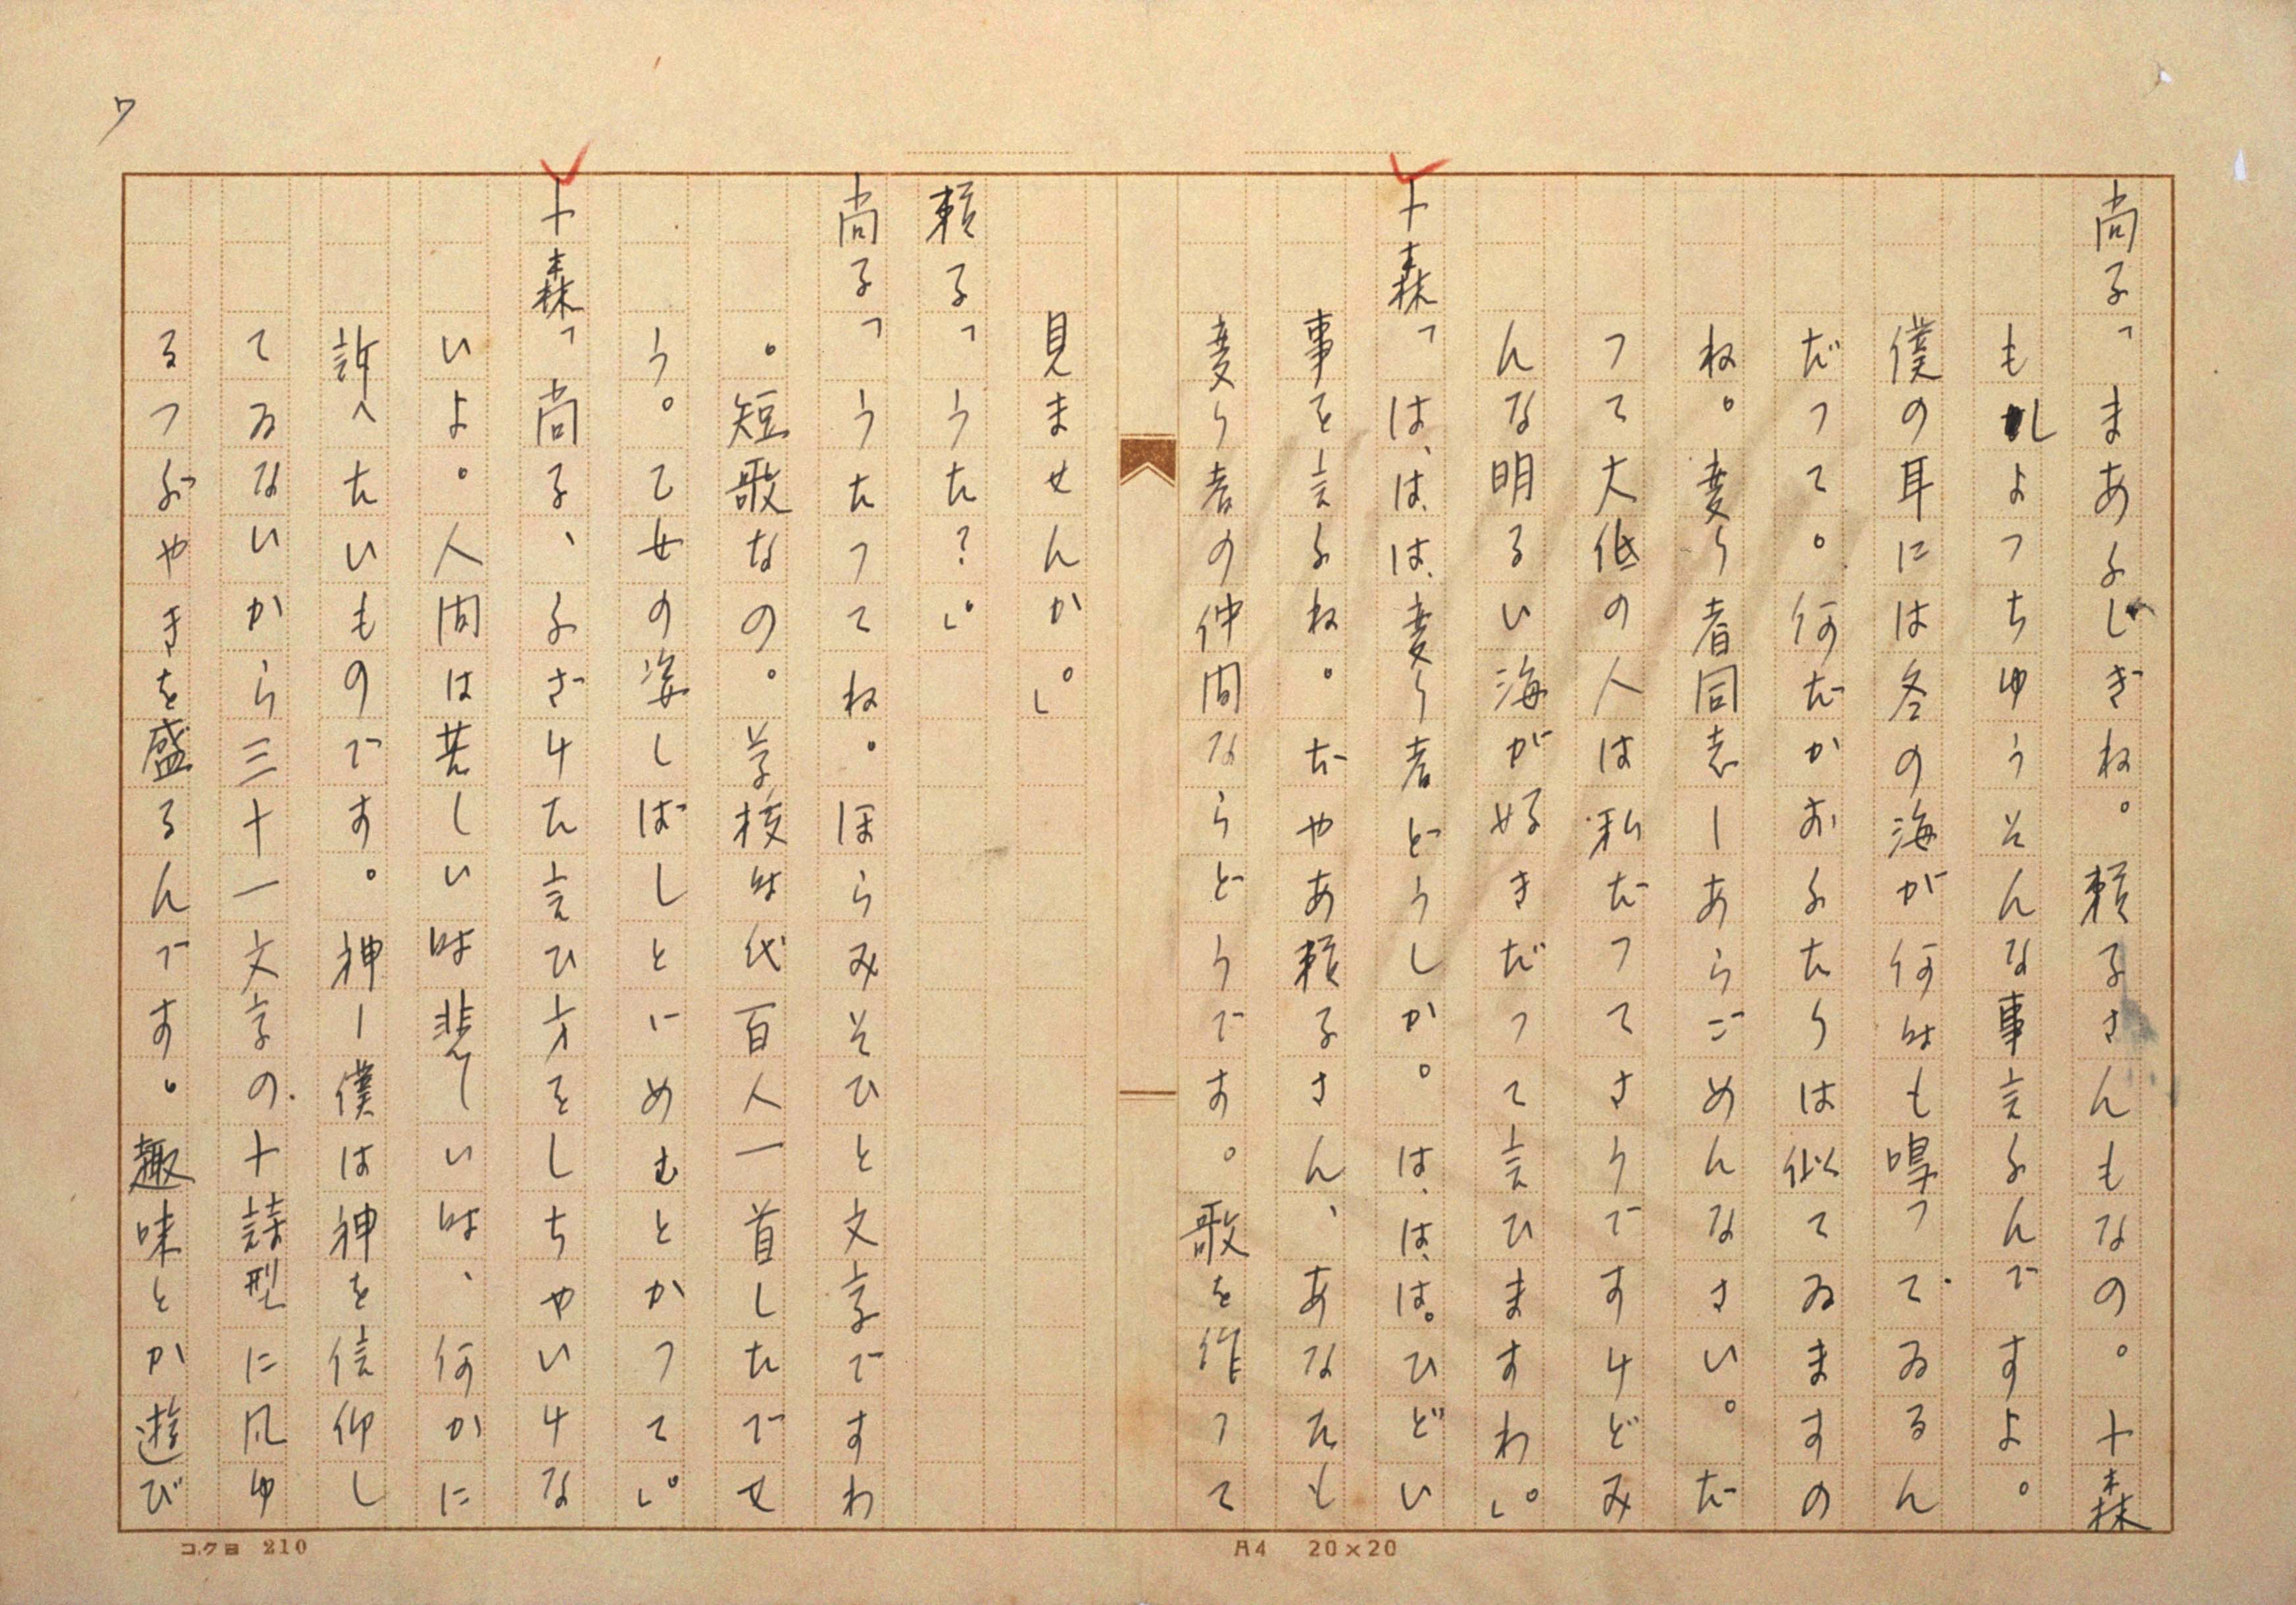 7
尚子「まあふしぎね。頼子さんもなの。十森
もしよつちゆうそんな事言ふんですよ。
僕の耳には冬の海が何時も鳴つてゐるん
だつて。何だかおふたりは似てゐますの
ね。変り者同志ーあらごめんなさい。だ
つて大低の人は私だつてさうですけどみ
んな明るい海が好きだつて言ひますわ。」
十森「は、は、は、変り者どうしか。は、は、は。ひどい
事を言ふね。ぢやあ頼子さん、あなたも
変り者の仲間ならどうです。歌を作つて
見ませんか。」
頼子「うた?」
尚子「うたつてね。ほらみそひと文字ですわ
。短歌なの。学校時代百人一首したでせ
う。乙女の姿しばしとどめむとかつて。」
十森「尚子、ふざけた言ひ方をしちやいけな
いよ。人間は苦しい時悲しい時、何かに
訴へたいものです。神ー僕は神を信仰し
てゐないから三十一文字の十詩型に凡ゆ
るつぶやきを盛るんです。趣味とか遊び
コクヨ 210
A4 20×20